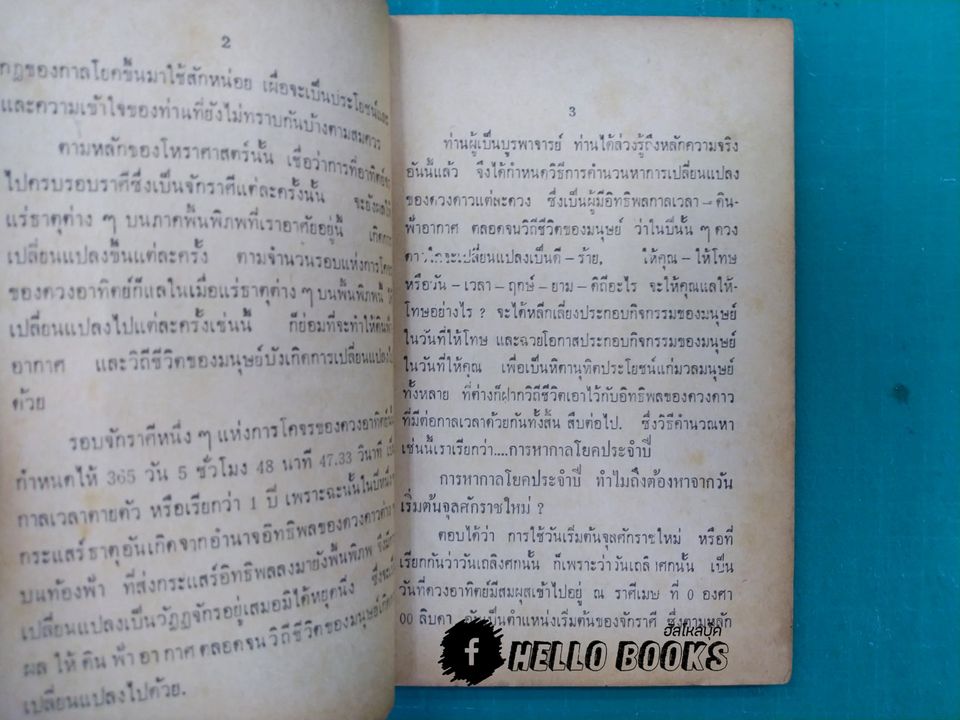 2
กฎของกาลโยคขึ้นมาใช้สักหน่อย เผื่อจะเป็นประโยชน์และ
และความเข้าใจของท่านที่ยังไม่ทราบกันบ้างตามสมควร
ตามหลักของโหราศาสตร์นั้น เชื่อว่าการที่อาทิตย์
ไปครบรอบราศีซึ่งเป็นจักราศีแต่ละครั้งนั้น จะยังผลให้
แร่ธาตุต่าง ๆ บนภาคพื้นพิภพที่เราอาศัยอยู่นี้ เกิดการ
เปลี่ยนแปลงขึ้นแต่ละครั้ง ตามจำนวนรอบแห่งการโคจร
ของดวงอาทิตย์ก็แลในเมื่อแร่ธาตุต่าง ๆ บนพื้นพิภพนี้
เปลี่ยนแปลงไปแต่ละครั้งเช่นนี้ ก็ย่อมที่จะทำให้ดินฟ้า
อากาศ และวิถีชีวิตของมนุษย์บังเกิดการเปลี่ยนแปลงไป
ด้วย
รอบจักราศีหนึ่ง ๆ แห่งการโคจรของดวงอาทิตย์นั้น
กำหนดให้ 365 วัน 5 ชั่วโมง 48 นาที 47.33 วินาที
กาลเวลาตายตัว หรือเรียกว่า 1 ปี เพราะฉะนั้นในปีหนึ่งๆ
กระแสร์ธาตุอันเกิดจากอำนาจอิทธิพลของดวงดาวต่างๆ
บนท้องฟ้า ที่ส่งกระแสร์อิทธิพลลงมายังพื้นพิภพ จึงมีการ
เปลี่ยนแปลงเป็นวัฏฏจักรอยู่เสมอมิได้หยุดนึ่ง ซึ่งจะ
ผล ให้ ดิน ฟ้า อา กาศ ตลอดจน วิถีชีวิต ของมนุษย์เกิด
เปลี่ยนแปลงไปด้วย.
3
ท่านผู้เป็นบุรพาจารย์ ท่านได้ล่วงรู้ถึงหลักความจริง
อันนี้แล้ว จึงได้กำหนดวิธีการคำนวนหาการเปลี่ยนแปลง
ของดวงดาวแต่ละดวง ซึ่งเป็นผู้มีอิทธิพลกาลเวลา – ดิน–
ฟ้าอากาศ ตลอดจนวิถีชีวิตของมนุษย์ ว่าในปีนั้น ๆ ดวง
ดาวใดจะเปลี่ยนแปลงเป็นดี – ร้าย, ให้คุณ – ให้โทษ
หรือวัน – เวลา – ฤกษ์ – ยาม – ดิถีอะไร จะให้คุณแลให้–
โทษอย่างไร ? จะได้หลีกเลี่ยงประกอบกิจกรรมของมนุษย์
ในวันที่ให้โทษ และฉวยโอกาสประกอบกิจกรรมของมนุษย์
ในวันที่ให้คุณ เพื่อเป็นหิตานุหิตประโยชน์แก่มวลมนุษย์
ทั้งหลาย ที่ต่างก็ฝากวิถีชีวิตเอาไว้กับอิทธิพลของดวงดาว
ที่มีต่อกาลเวลาด้วยกันทั้งสิ้น สืบต่อไป. ซึ่งวิธีคำนวณหา
เช่นนี้เราเรียกว่า....การหากาลโยคประจำปี
การหากาลโยคประจำปี ทำไมถึงต้องหาจากวัน
เริ่มต้นจุลศักราชใหม่ ?
ตอบได้ว่า การใช้วันเริ่มต้นจุลศักราชใหม่ หรือที่
เรียกกันว่าวันเถลิงศกนั้น ก็เพราะว่าวันเถลิงศกนั้น เป็น
วันที่ดวงอาทิตย์มีสมผุสเข้าไปอยู่ ณ ราศีเมษ ที่ 0 องศา
00 ลิบดา อันเป็นตำแหน่งเริ่มต้นของจักราศี ซึ่งตามหลัก
ฮัลโหลบุ๊ค
f HELLO BOOKS